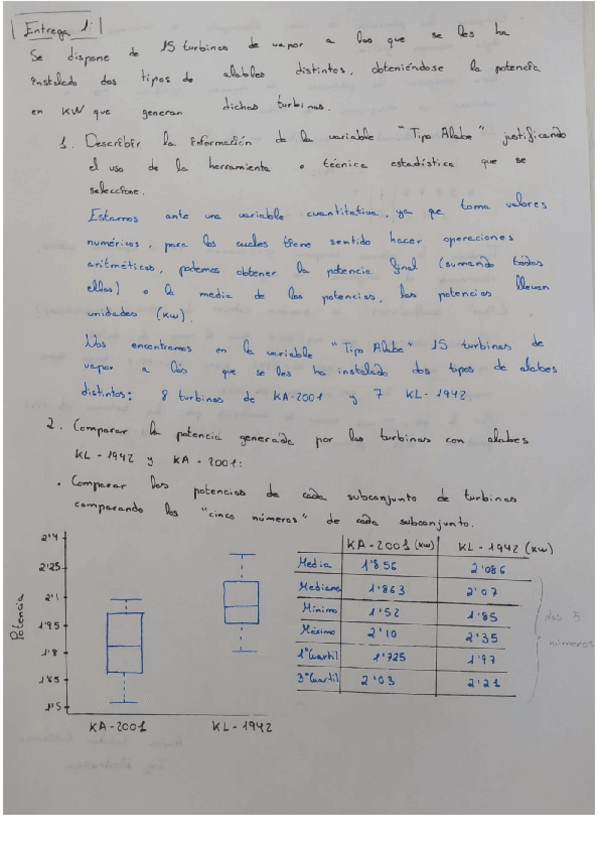 Entrega 1:
Se dispone de 15 turbinas de vapor a las que se les ha
instalado dos tipos de alabes distintos, obteniéndose la potencia
en KW que generan dichas turbinas.
1. Describir la información de la variable "Tipo Alabe" justificando
el uso de la herramienta o técnica estadística que se
seleccione.
Estamos ante una variable cuantitativa, ya que toma valores
numéricos, para los cuales tiene sentido hacer operaciones
aritméticas, podemos obtener la potencia final (sumando todas
ellas) o la media de las potencias, las potencias llevan
unidades (kw).
Nos encontramos en la variable "Tipo Alabe" 15 turbinas de
vapor a las que se les ha instalado dos tipos de alabes
distintos: 8 turbinas de KA-2001 y 7 KL-1942.
2. Comparar la potencia generada por las turbinas con alabes
KL-1942 y KA-2001:
• Comparar las potencias de cada subconjunto de turbinas
comparando los "cinco números" de cada subconjunto.
KA-2001 (kw) KL-1942 (kw)
Media 1'856 2'086
Mediana 1'863 2'07
Mínimo 1'52 1'85
Máximo 2'10 2'35
1º Cuartil 1'725 1'97
3º Cuartil 2'03 2'21
los 5
números
Potencia
2'4
2'25
2'1
1'95
1'8
1'65
1'5
KA-2001 KL-1942